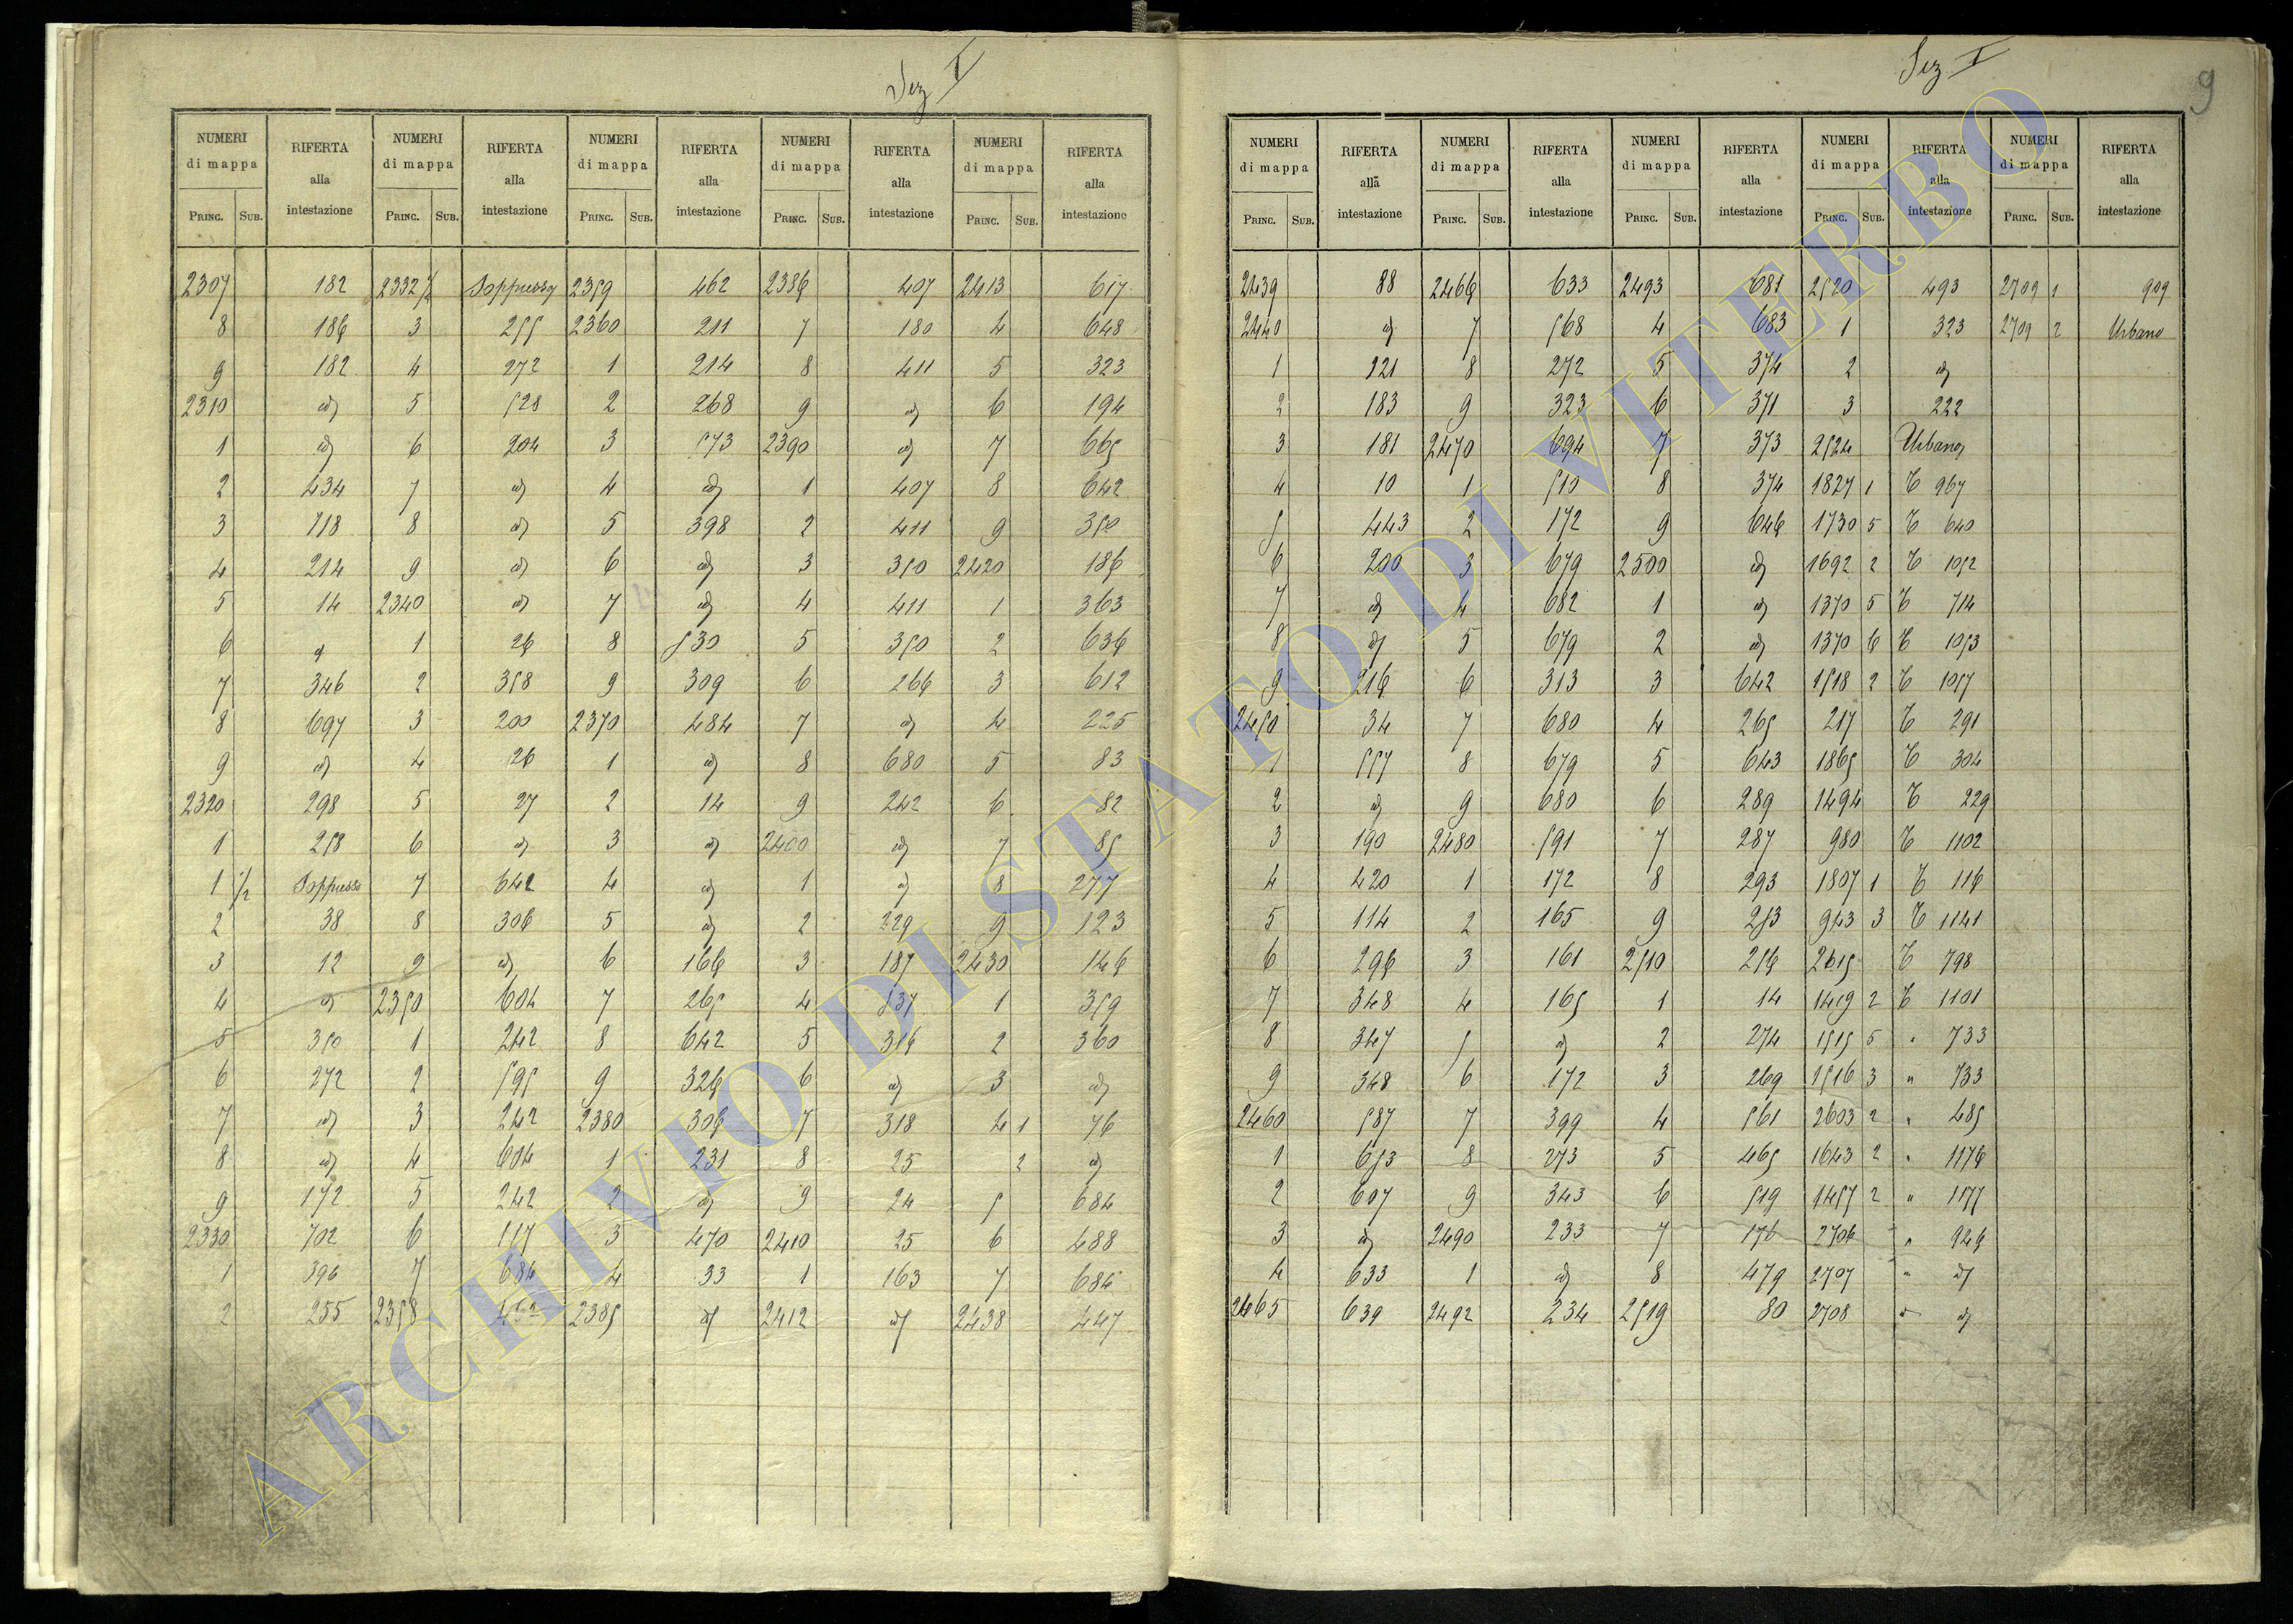 Sez I
NUMERI di mappa RIFERTA alla intestazione NUMERI di mappa RIFERTA alla intestazione NUMERI di mappa RIFERTA alla intestazione NUMERI di mappa RIFERTA alla intestazione NUMERI di mappa RIFERTA alla intestazione
PRINC. SUB. PRINC. SUB. PRINC. SUB. PRINC. SUB. PRINC. SUB.
2307 182 2332 1/2 Soppresso 2359 462 2386 407 2413 617
8 186 3 255 2360 211 7 180 4 648
9 182 4 272 1 214 8 411 5 323
2310 id 5 528 2 268 9 id 6 194
1 id 6 204 3 573 2390 id 7 665
2 434 7 id 4 id 1 407 8 642
3 718 8 id 5 398 2 411 9 350
4 214 9 id 6 id 3 350 2420 186
5 14 2340 id 7 id 4 411 1 363
6 id 1 26 8 530 5 350 2 636
7 346 2 358 9 309 6 266 3 612
8 697 3 200 2370 484 7 id 4 225
9 id 4 26 1 id 8 680 5 83
2320 298 5 27 2 14 9 242 6 82
1 258 6 id 3 id 2400 id 7 85
1 1/2 Soppresso 7 642 4 id 1 id 8 277
2 38 8 306 5 id 2 229 9 123
3 12 9 id 6 166 3 187 2430 146
4 id 2350 604 7 265 4 537 1 359
5 350 1 242 8 642 5 316 2 360
6 272 2 595 9 326 6 id 3 id
7 id 3 242 2380 306 7 318 4 1 76
8 id 4 604 1 231 8 25 2 id
9 172 5 242 2 id 9 24 5 684
2330 702 6 117 3 470 2410 25 6 488
1 396 7 684 4 33 1 163 7 684
2 255 2358 2385 id 2412 id 2438 447
Sez I
9
NUMERI di mappa RIFERTA alla intestazione NUMERI di mappa RIFERTA alla intestazione NUMERI di mappa RIFERTA alla intestazione NUMERI di mappa RIFERTA alla intestazione NUMERI di mappa RIFERTA alla intestazione
PRINC. SUB. PRINC. SUB. PRINC. SUB. PRINC. SUB. PRINC. SUB.
2439 88 2466 633 2493 681 2520 493 2709 1 909
2440 id 7 568 4 683 1 323 2709 2 Urbano
1 121 8 272 5 374 2 id
2 183 9 323 6 371 3 222
3 181 2470 694 7 373 2524 Urbano
4 10 1 510 8 374 1827 1 T 967
5 443 2 172 9 646 1730 5 T 640
6 200 3 679 2500 id 1692 2 T 1052
7 id 4 682 1 id 1370 5 T 714
8 id 5 679 2 id 1370 6 T 1053
9 216 6 313 3 642 1518 2 T 1057
2450 34 7 680 4 265 217 T 291
1 557 8 679 5 643 1865 T 304
2 id 9 680 6 289 1494 T 229
3 190 2480 591 7 287 980 T 1102
4 420 1 172 8 293 1807 1 T 116
5 114 2 165 9 253 943 3 T 1141
6 296 3 161 2510 256 2615 T 798
7 348 4 165 1 14 1419 2 T 1101
8 347 5 id 2 274 1515 5 " 733
9 348 6 172 3 269 1516 3 " 733
2460 587 7 399 4 561 2603 2 " 485
1 653 8 273 5 465 1643 2 " 1176
2 607 9 343 6 519 1457 2 " 1177
3 id 2490 233 7 176 2706 " 946
4 633 1 id 8 479 2707 " id
2465 639 2492 234 2519 80 2708 " id
ARCHIVIO DI STATO DI VITERBO